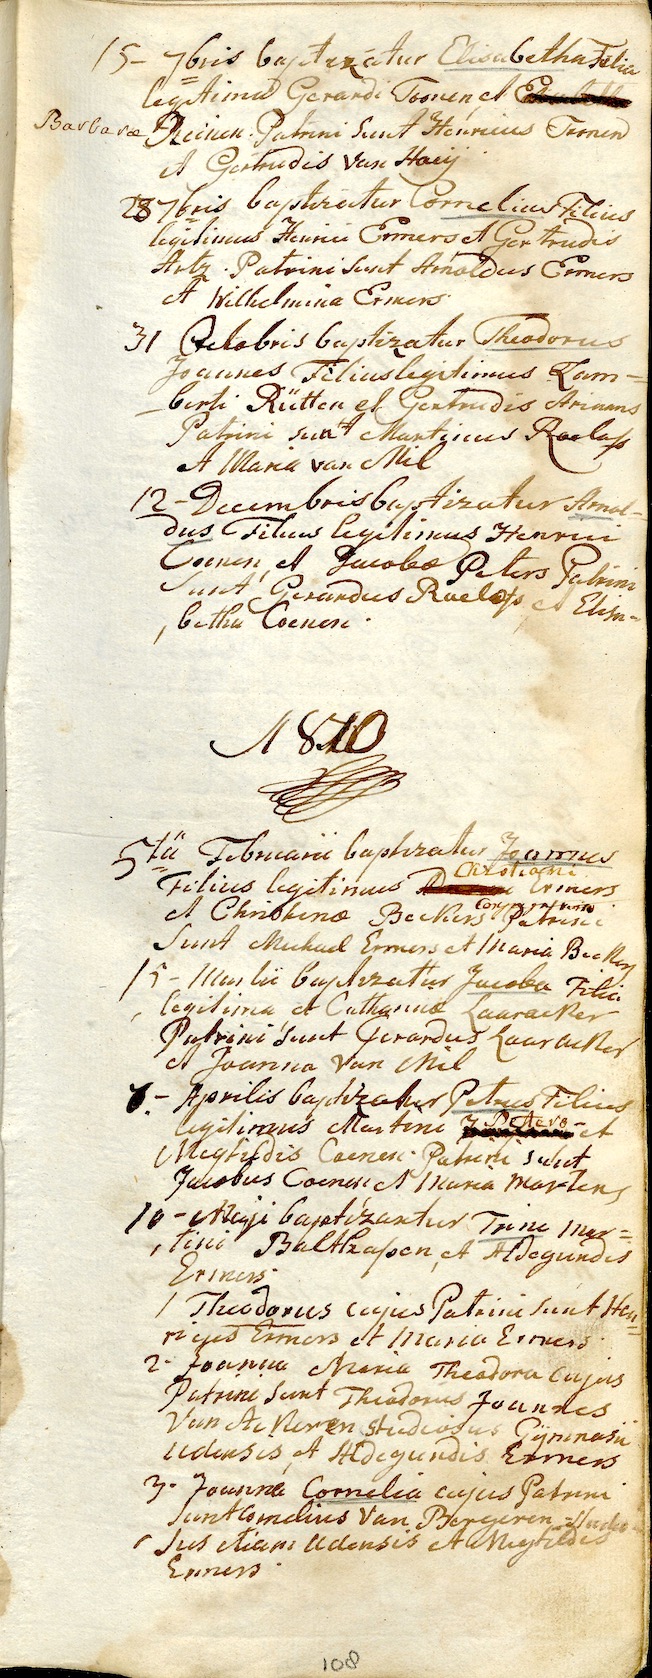 15 - 7bris baptizatur Elisabetha Filia
legitima Gerardi Toonen et
Barbaræ Reinen. Patrini sunt Henricus Toonen
et Gertrudis van Haeij
28 7bris baptizatur Cornelius Filius
legitimus Henrici Ermers et Gertrudis
Artz. Patrini sunt Arnoldus Ermers
et Wilhelmina Ermers.
31 Octobris baptizatur Theodorus
Joannes Filius legitimus Lam=
berti Rütten et Gertrudis Arians
Patrini sunt Martinus Roelofs
et Maria van Mil
12 - Decembris baptizatur Arnol=
dus Filius legitimus Henrici
Coenen, et Jacobæ Peters Patrini
sunt Gerardus Roelofs, et Elisa=
betha Coenen.
1810
5tii Februarii baptizatur Joannes
Christiani
Filius legitimus Ermers
et Christinæ Beckers Patrini
sunt Michael Ermers et Maria Beckers
15 - Martii baptizatur Jacoba Filia
legitima et Catharinæ Laaracker
Patrini sunt Gerardus Laaracker
et Joanna van Mil
8 - Aprilis baptizatur Petrus Filius
legitimus Martini Peters et
Megtildis Coenen. Patrini sunt
Jacobus Coenen et Maria Martens
10 - Maji baptizantur Trini Mar=
tini Balthassen, et Aldegundis
Ermers.
1 Theodorus cujus Patrini sunt Hen=
ricus Ermers et Maria Ermers.
2. Joanna Maria Theodora cujus
Patrini sunt Theodorus Joannes
van Ackeren studiosus Gijmnasii
Udensis, et Aldegundis Ermers
3. Joanna Cornelia cujus Patrini
sunt Cornelius van Bergeren studio
sus etiam Udensis et Megtildis
Ermers.
108